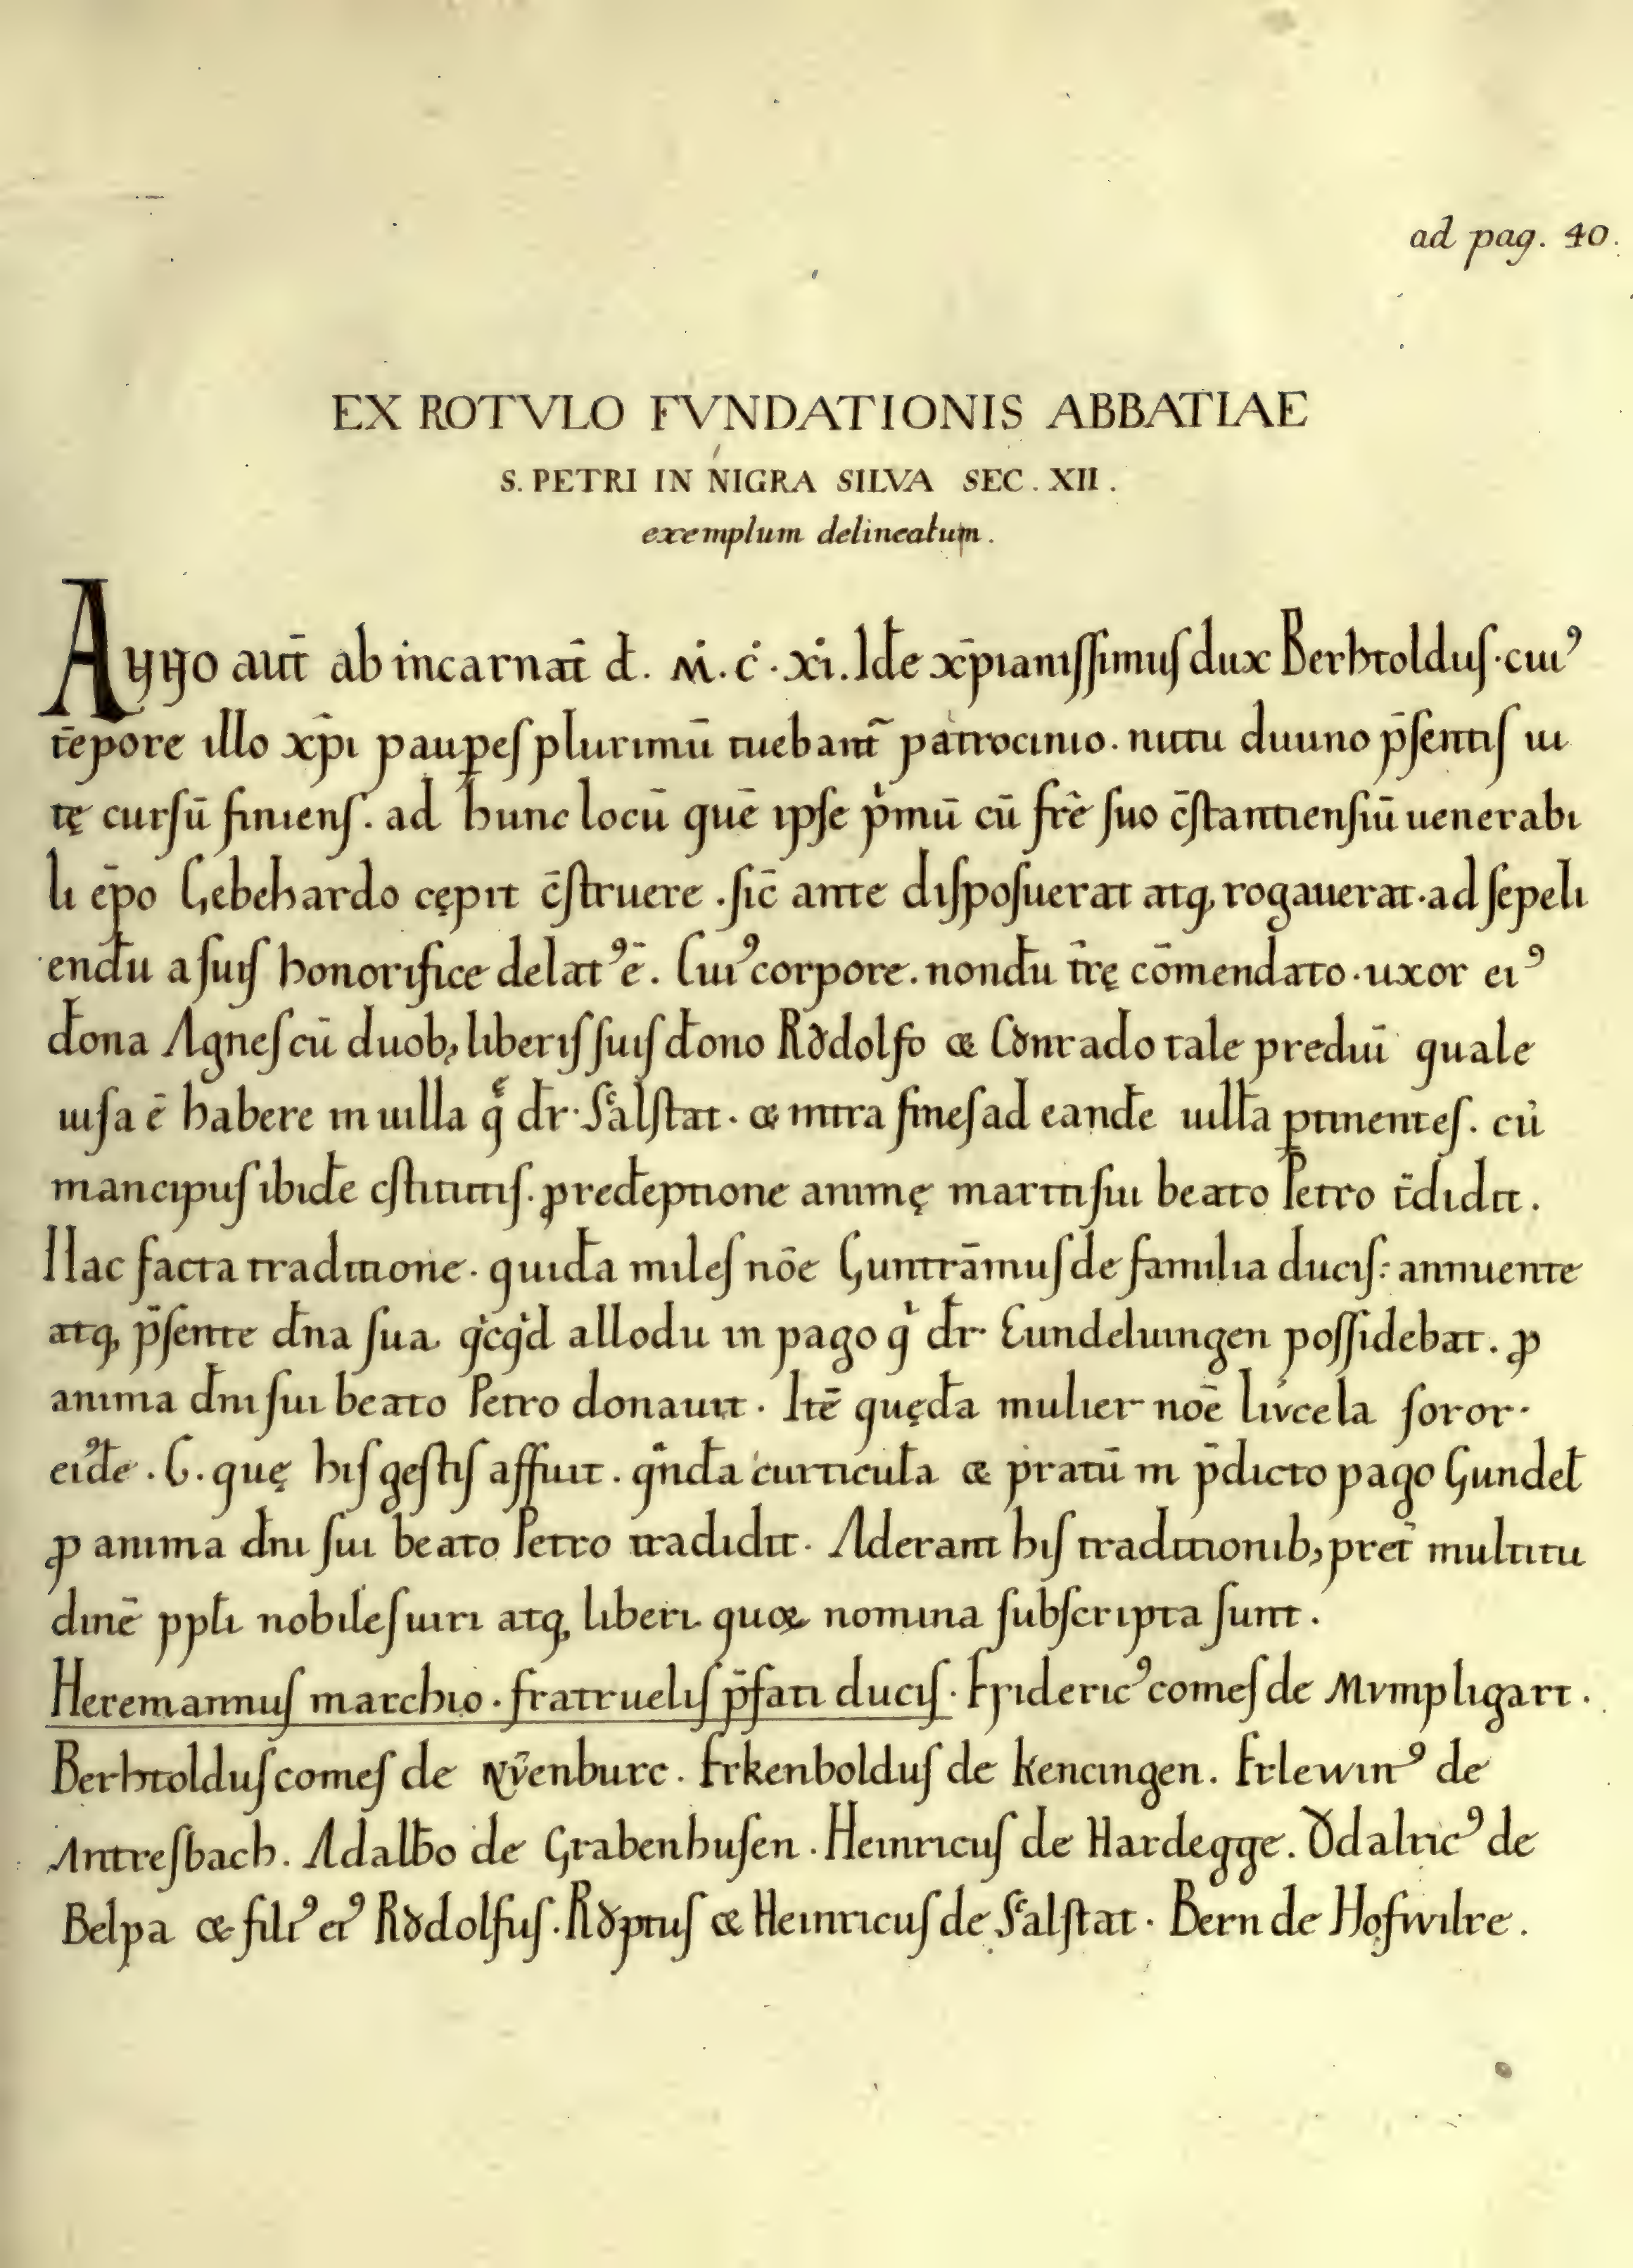 ad pag. 40.
EX ROTVLO FVNDATIONIS ABBATIAE
S. PETRI IN NIGRA SILVA SEC. XII.
exemplum delineatum.
Anno aut̄ ab incarnat̄ đ. M. c. xi. Idē xp̄ianiſſimuſ dux Berhtolduſ. cuiꝰ
tēpore illo xp̄i paup̲eſ plurimū tuebant̄ patrocinio. nutu diuino p̄ſentiſ ui
tę curſū finienſ. ad hunc locū quē ipſe pͥmū cū fr̄e ſuo c̄ſtantienſiū uenerabi
li ep̄o Gebehardo cępit c̄ſtruere. ſic̄ ante diſpoſuerat atq; rogauerat. ad ſepeli
endū a ſuiſ honorifice delatꝰ ē. Cuiꝰ corpore. nondū tr̄ę cōmendato. uxor eiꝰ
đona Agneſ cū duob; liberiſ ſuiſ đono Rǒdolfo & Cǒnrado tale prediū quale
uiſa ē habere in uilla q̄ đr. Scalſtat. & intra fineſ ad eandē uillā ꝑtinenteſ. cū
mancipiiſ ibidē c̄ſtitutiſ. ꝓ redēptione animę maritiſui beato Petro t̄didit.
Hac facta traditione. quidā mileſ nōe Guntrāmuſ de familia duciſ: annuente
atq; p̄ſente đna ſua qͥcqͥd allodii in pago qͥ đr Gundeluingen poſſidebat. ꝓ
anima đni ſui beato Petro donauit. Itē quędā mulier nōe livcela ſoror
eiꝰdē. G. quę hiſ geſtiſ affuit. qͣndā curticulā & pratū in p̄dicto pago Gundel̄
ꝓ anima đni ſui beato Petro tradidit. Aderant hiſ traditionib; pret̄ multitu
dinē ppl̄i nobileſ uiri atq; liberi quoꝝ nomina ſubſcripta ſunt.
Heremannuſ marchio. fratrueliſ p̄fati duciſ. Fridericꝰ comeſ de Mvmpligart.
Berhtolduſ comeſ de Nv̄enburc. Erkenbolduſ de Kencingen. Erlewinꝰ de
Antreſbach. Adalb̄o de Grabenhuſen. Heinricuſ de Hardegge. Ǒdalricꝰ de
Belpa & filiꝰ eiꝰ Rǒdolfuſ. Rǒꝑtuſ & Heinricuſ de Scalſtat. Bern de Hofwilre.